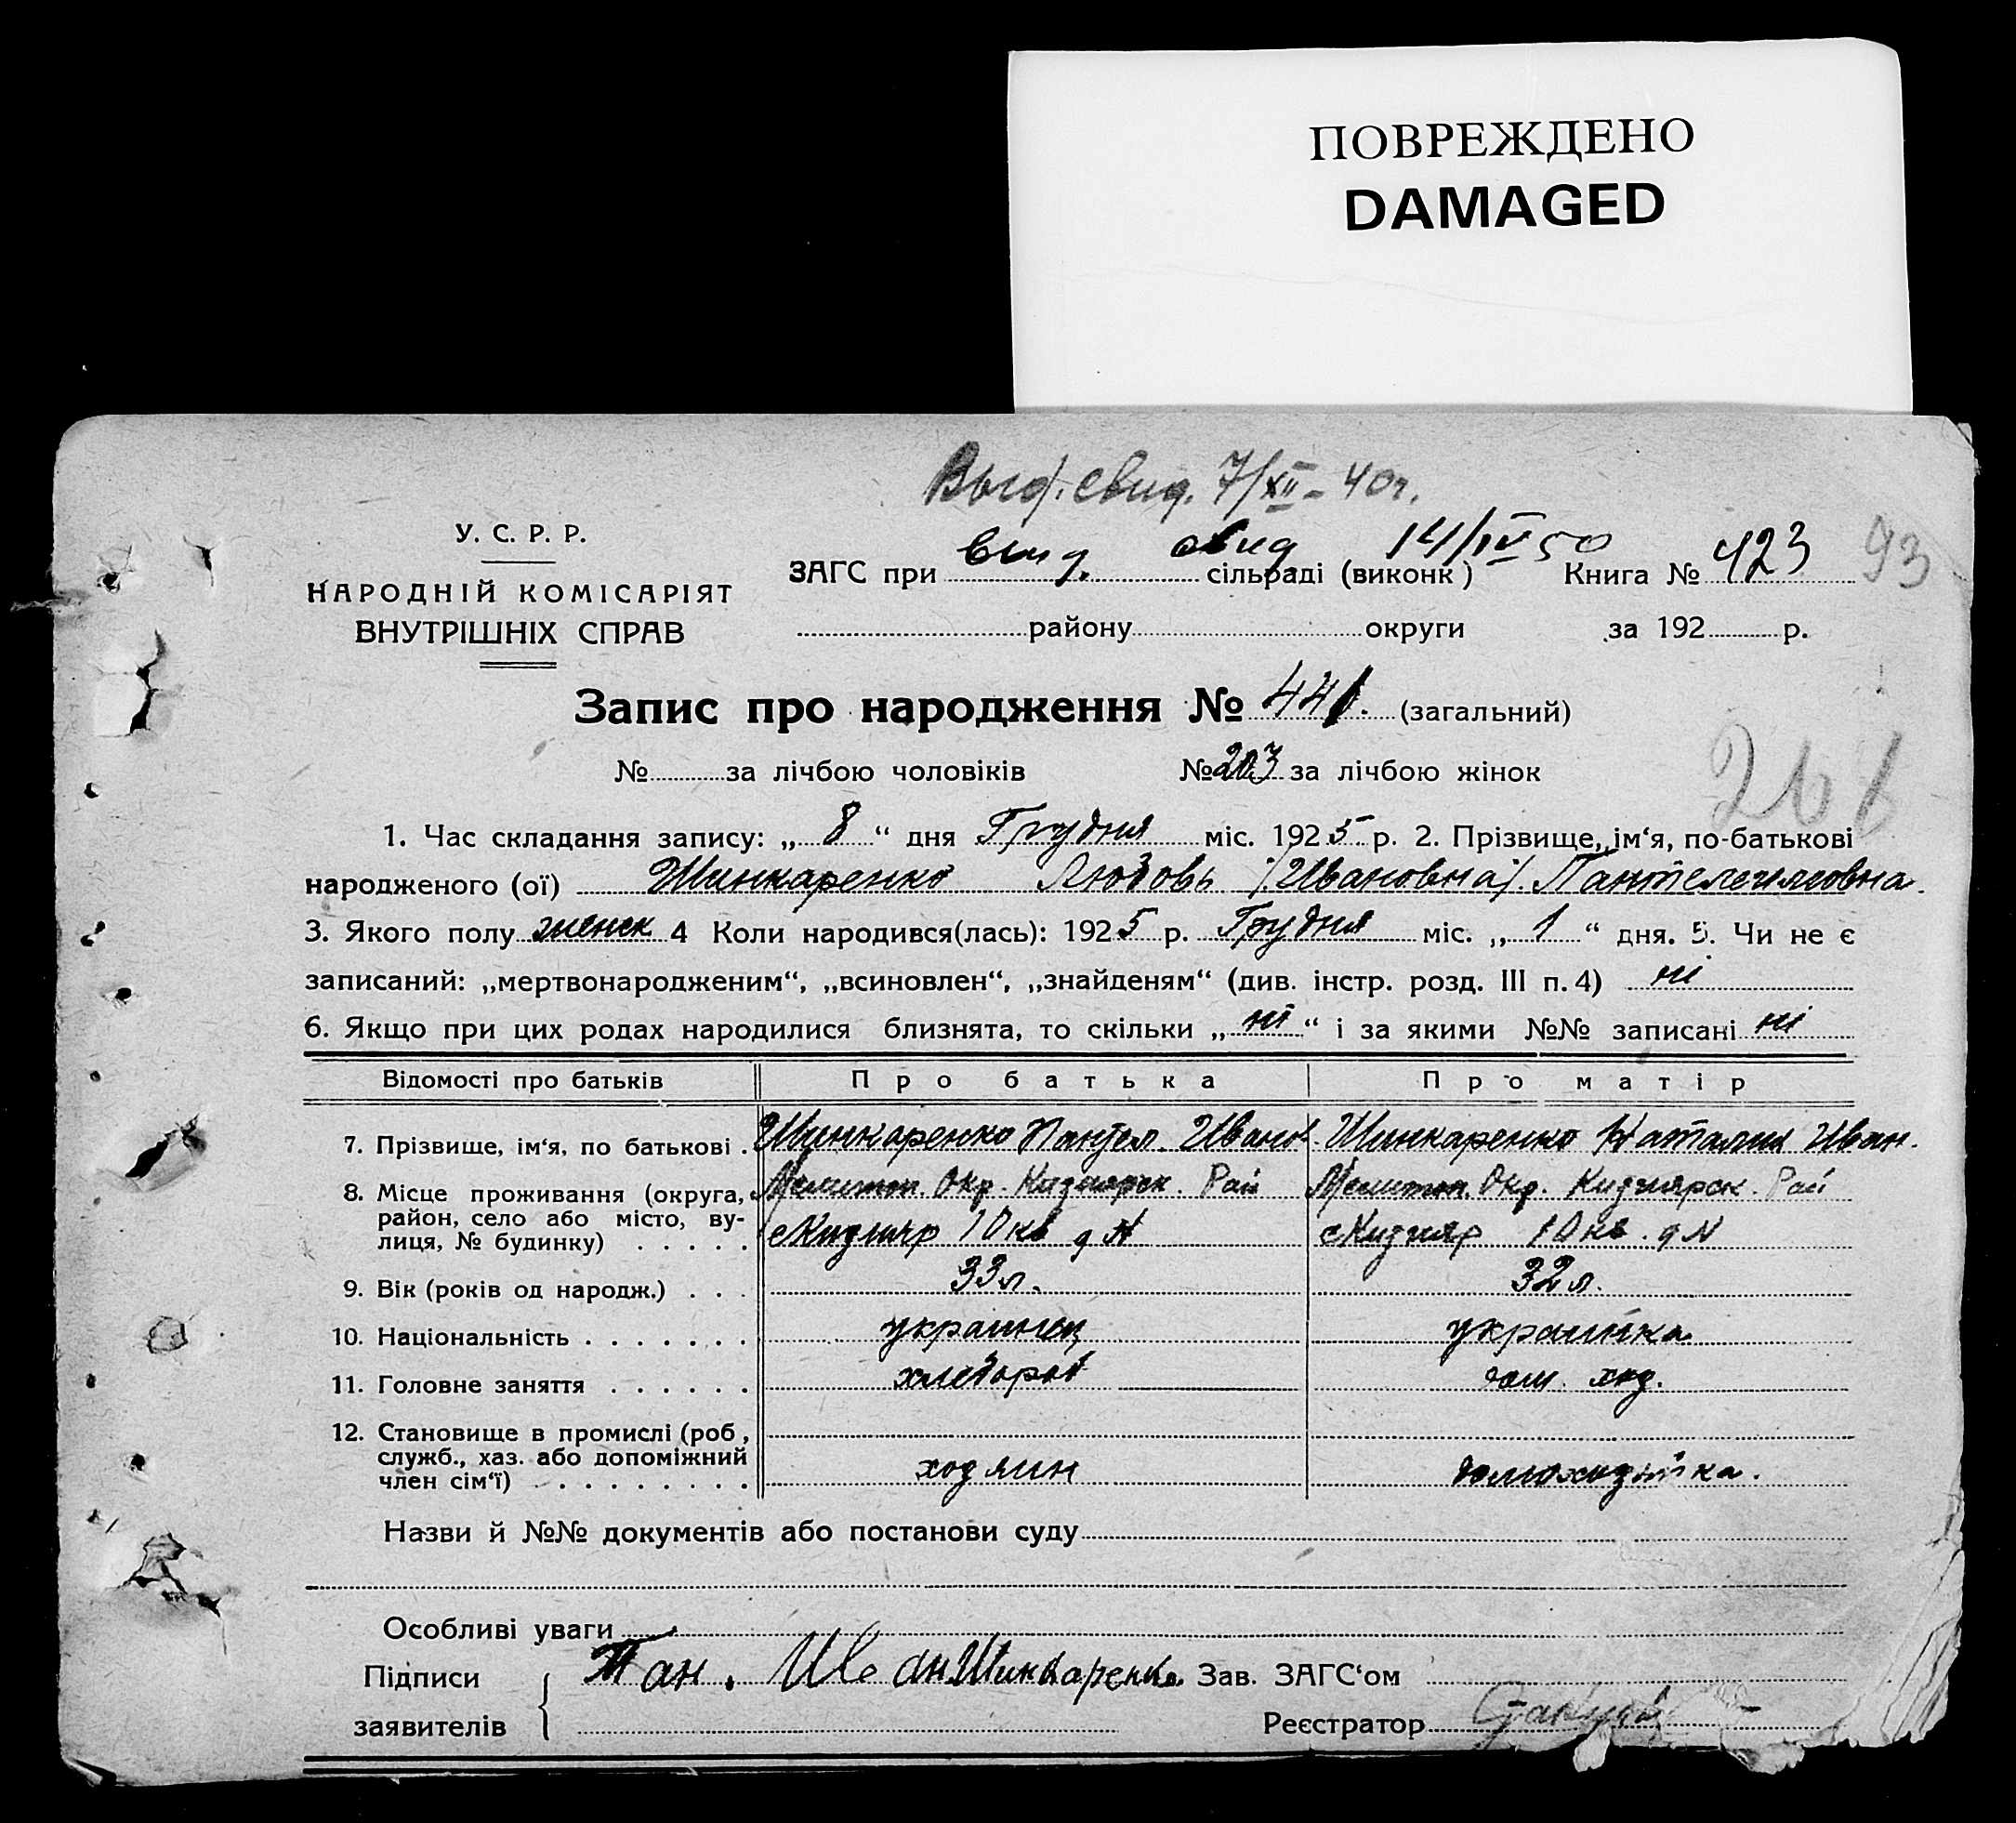 ПОВРЕЖДЕНО
DAMAGED
Выд. свид. 7/XII - 40г.
У. С. Р. Р.
НАРОДНІЙ КОМІСАРІЯТ
ВНУТРІШНІХ СПРАВ
ЗАГС при выд. свид 14/IV 50 сільраді (виконк) Книга № 423 93
району округи за 192 р.
Запис про народження № 441. (загальний)
№ за лічбою чоловіків № 203 за лічбою жінок
261
1. Час складання запису: „ 8 “ дня Грудня міс. 1925 р. 2. Прізвище, ім‘я, по-батькові
народженого (ої) Шинкаренко Любовь /Ивановна/. Пантелеимовна.
3. Якого полу женск 4 Коли народився(лась): 1925 р. Грудня міс. „ 1 “ дня. 5. Чи не є
записаний: „мертвонародженим“, „всиновлен“, „знайденям“ (див. інстр. розд. III п. 4) ні
6. Якщо при цих родах народилися близнята, то скільки „ ні “ і за якими №№ записані ні
Відомості про батьків Про батька Про матір
7. Прізвище, ім‘я, по батькові . Шинкаренко Пантел. Иванов. Шинкаренко Наталия Иван.
8. Місце проживання (округа, Мелитоп. Окр. Кизиярск. Рай Мелитоп. Окр. Кизиярск. Рай
район, село або місто, ву-
лиця, № будинку) . . . . . с Кизияр 10 кв д N с Кизияр 10 кв. д N
9. Вік (років од народж.) . . . 33 л. 32 л.
10. Національність . . . . . . . украинец украинка
11. Головне заняття . . . . . . хлебороб дом. хоз.
12. Становище в промислі (роб,
служб., хаз. або допоміжний
член сім‘ї) . . . . . . . . . хозяин домохозяйка.
Назви й №№ документів або постанови суду
Особливі уваги
Підписи Пан. Ив Шинкаренко Зав. ЗАГС‘ом
заявителів Реєстратор